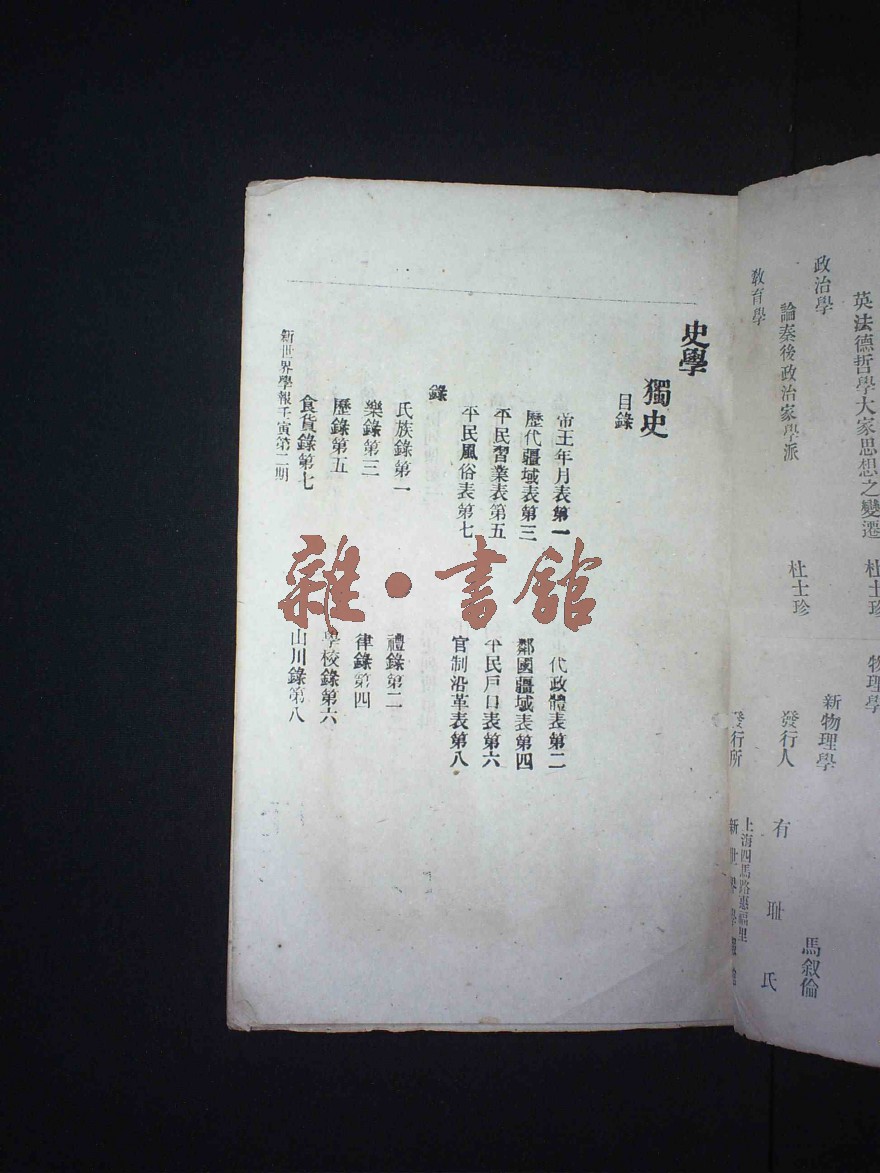 英法德哲學大家思想之變遷 杜士珍
物理學
政治學
新物理學 馬叙倫
論秦後政治家學派 杜士珍
發行人 有耻氏
教育學
發行所 上海四馬路惠福里
新世界學報館
史學
獨史
目錄
帝王年月表第一 代政體表第二
歷代疆域表第三 鄰國疆域表第四
平民習業表第五 平民戶口表第六
平民風俗表第七 官制沿革表第八
錄
氏族錄第一 禮錄第二
樂錄第三 律錄第四
歷錄第五 學校錄第六
食貨錄第七 山川錄第八
新世界學報壬寅第二期
雜·書舘